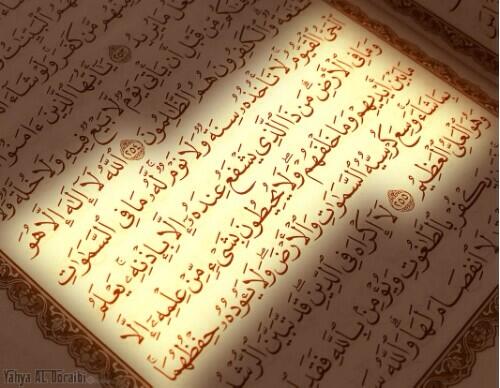 مَّن كَفَرَ ۚ وَلَوْ شَآءَ
يُرِيدُ ۝٢٥٣ يَٰٓأَيُّهَا ٱلَّذِينَ ءَامَنُوٓا۟
مِّن قَبْلِ أَن يَأْتِىَ يَوْمٌ لَّا بَيْعٌ فِيهِ وَلَا خُلَّةٌ وَلَا
وَٱلْكَٰفِرُونَ هُمُ ٱلظَّٰلِمُونَ ۝٢٥٤ ٱللَّهُ لَآ إِلَٰهَ إِلَّا هُوَ
ٱلْحَىُّ ٱلْقَيُّومُ ۚ لَا تَأْخُذُهُۥ سِنَةٌ وَلَا نَوْمٌ ۚ لَّهُۥ مَا فِى ٱلسَّمَٰوَٰتِ
وَمَا فِى ٱلْأَرْضِ ۗ مَن ذَا ٱلَّذِى يَشْفَعُ عِندَهُۥٓ إِلَّا بِإِذْنِهِۦ ۚ يَعْلَمُ
مَا بَيْنَ أَيْدِيهِمْ وَمَا خَلْفَهُمْ ۖ وَلَا يُحِيطُونَ بِشَىْءٍ مِّنْ عِلْمِهِۦٓ إِلَّا
بِمَا شَآءَ ۚ وَسِعَ كُرْسِيُّهُ ٱلسَّمَٰوَٰتِ وَٱلْأَرْضَ ۖ وَلَا يَـُٔودُهُۥ حِفْظُهُمَا ۚ
وَهُوَ ٱلْعَلِىُّ ٱلْعَظِيمُ ۝٢٥٥ لَآ إِكْرَاهَ فِى ٱلدِّينِ ۖ قَد تَّبَيَّنَ ٱلرُّشْدُ
يَكْفُرْ بِٱلطَّٰغُوتِ وَيُؤْمِنۢ بِٱللَّهِ فَقَدِ
لَا ٱنفِصَامَ لَهَا ۗ وَٱللَّهُ
Yahya AL Doraibi